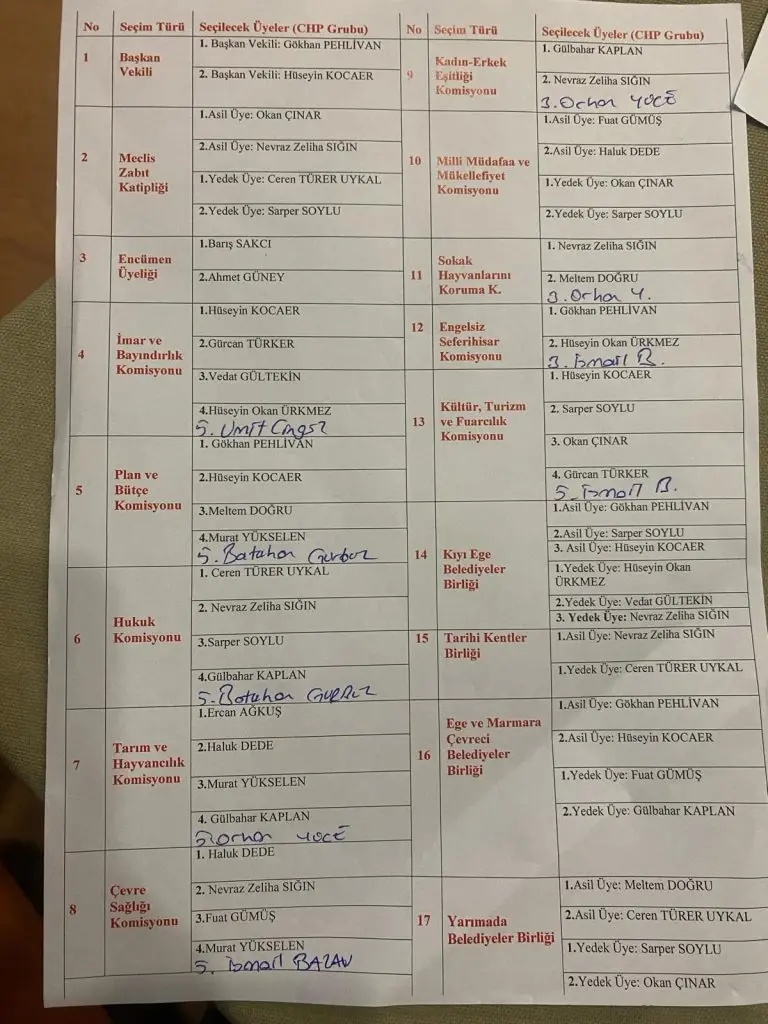 No Seçim Türü Seçilecek Üyeler (CHP Grubu)
1 Başkan Vekili
1. Başkan Vekili: Gökhan PEHLİVAN
2. Başkan Vekili: Hüseyin KOCAER
2 Meclis Zabıt Katipliği
1.Asil Üye: Okan ÇINAR
2.Asil Üye: Nevraz Zeliha SIĞIN
1.Yedek Üye: Ceren TÜRER UYKAL
2.Yedek Üye: Sarper SOYLU
3 Encümen Üyeliği
1.Barış SAKCI
2.Ahmet GÜNEY
4 İmar ve Bayındırlık Komisyonu
1.Hüseyin KOCAER
2.Gürcan TÜRKER
3.Vedat GÜLTEKİN
4.Hüseyin Okan ÜRKMEZ
5. Ümit
5 Plan ve Bütçe Komisyonu
1. Gökhan PEHLİVAN
2.Hüseyin KOCAER
3.Meltem DOĞRU
4.Murat YÜKSELEN
5. Batuhan
6 Hukuk Komisyonu
1. Ceren TÜRER UYKAL
2. Nevraz Zeliha SIĞIN
3.Sarper SOYLU
4.Gülbahar KAPLAN
5. Batuhan
7 Tarım ve Hayvancılık Komisyonu
1.Ercan AĞKUŞ
2.Haluk DEDE
3.Murat YÜKSELEN
4. Gülbahar KAPLAN
5. Orhan YÜCE
8 Çevre Sağlığı Komisyonu
1. Haluk DEDE
2. Nevraz Zeliha SIĞIN
3.Fuat GÜMÜŞ
4.Murat YÜKSELEN
5. İsmail BAZAN
No Seçim Türü Seçilecek Üyeler (CHP Grubu)
9 Kadın-Erkek Eşitliği Komisyonu
1. Gülbahar KAPLAN
2. Nevraz Zeliha SIĞIN
3. Orhan YÜCE
10 Milli Müdafaa ve Mükellefiyet Komisyonu
1.Asil Üye: Fuat GÜMÜŞ
2.Asil Üye: Haluk DEDE
1.Yedek Üye: Okan ÇINAR
2.Yedek Üye: Sarper SOYLU
11 Sokak Hayvanlarını Koruma K.
1. Nevraz Zeliha SIĞIN
2. Meltem DOĞRU
3. Orhan Y.
12 Engelsiz Seferihisar Komisyonu
1. Gökhan PEHLİVAN
2. Hüseyin Okan ÜRKMEZ
3. İsmail B.
13 Kültür, Turizm ve Fuarcılık Komisyonu
1. Hüseyin KOCAER
2. Sarper SOYLU
3. Okan ÇINAR
4. Gürcan TÜRKER
5. İsmail B.
14 Kıyı Ege Belediyeler Birliği
1.Asil Üye: Gökhan PEHLİVAN
2.Asil Üye: Sarper SOYLU
3. Asil Üye: Hüseyin KOCAER
1.Yedek Üye: Hüseyin Okan ÜRKMEZ
2.Yedek Üye: Vedat GÜLTEKİN
3. Yedek Üye: Nevraz Zeliha SIĞIN
15 Tarihi Kentler Birliği
1.Asil Üye: Nevraz Zeliha SIĞIN
1.Yedek Üye: Ceren TÜRER UYKAL
16 Ege ve Marmara Çevreci Belediyeler Birliği
1.Asil Üye: Gökhan PEHLİVAN
2.Asil Üye: Hüseyin KOCAER
1.Yedek Üye: Fuat GÜMÜŞ
2.Yedek Üye: Gülbahar KAPLAN
17 Yarımada Belediyeler Birliği
1.Asil Üye: Meltem DOĞRU
2.Asil Üye: Ceren TÜRER UYKAL
1.Yedek Üye: Sarper SOYLU
2.Yedek Üye: Okan ÇINAR